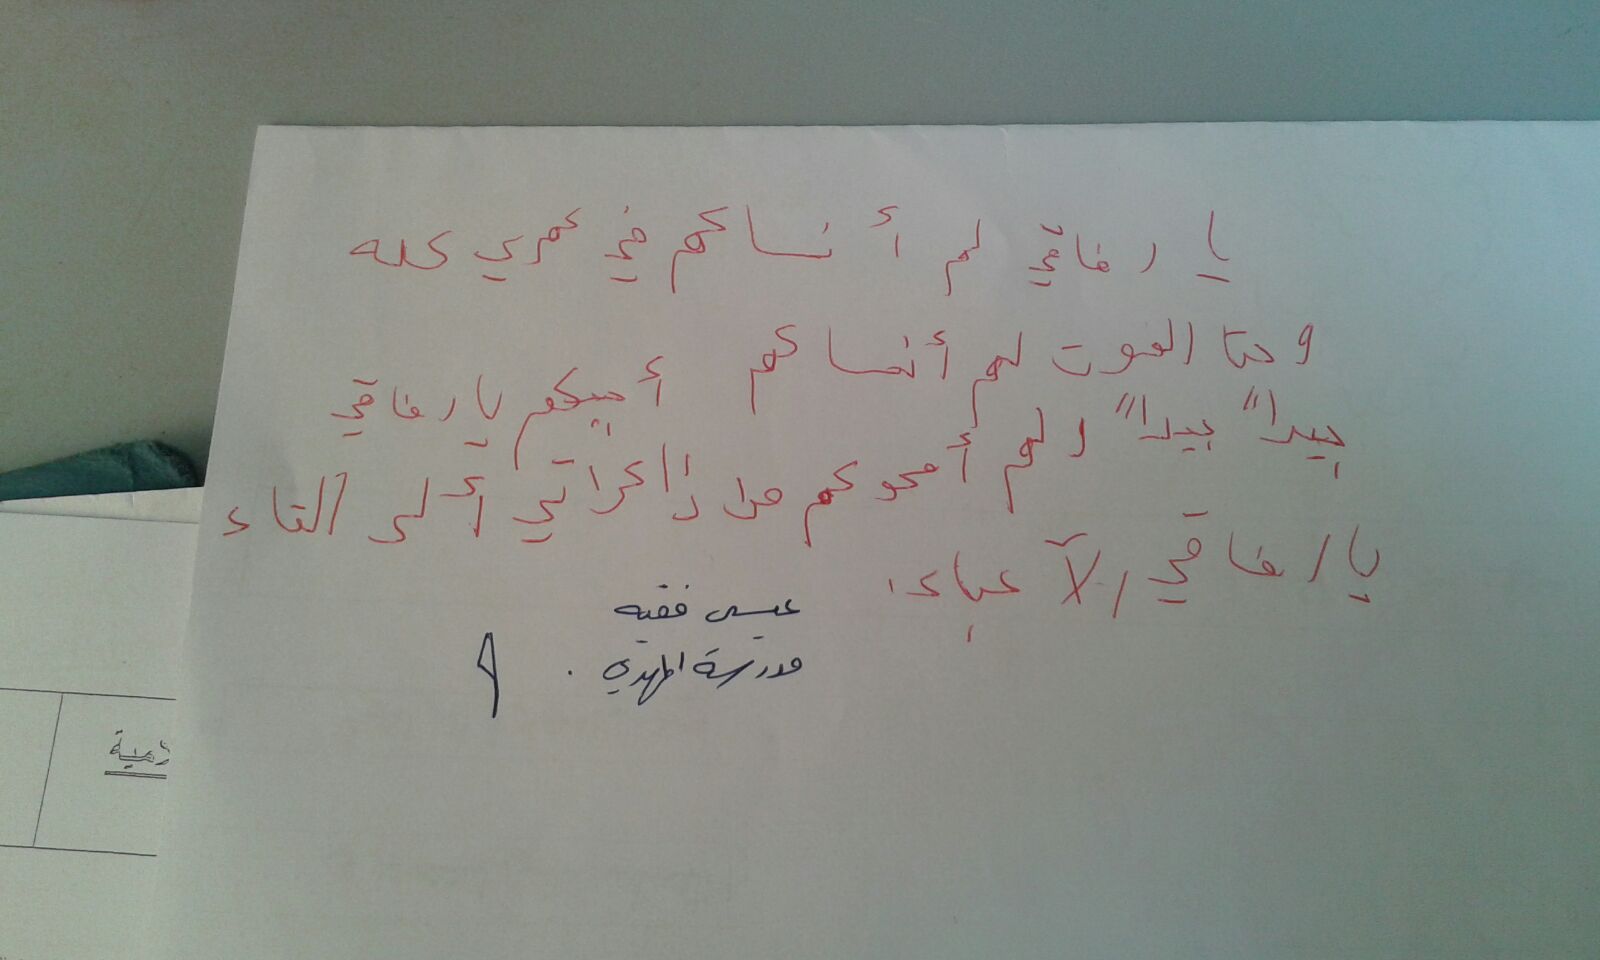 يا رفاقي لم أنساكم في عمري كله
و حتا الموت لم أنساكم أحبكم يا رفاقي
جيداً جيداً ولم أمحوكم من ذاكراتي ألى القاء
يا رفاقي الآعباء
عيسى فقيه
مدرسة المهدي